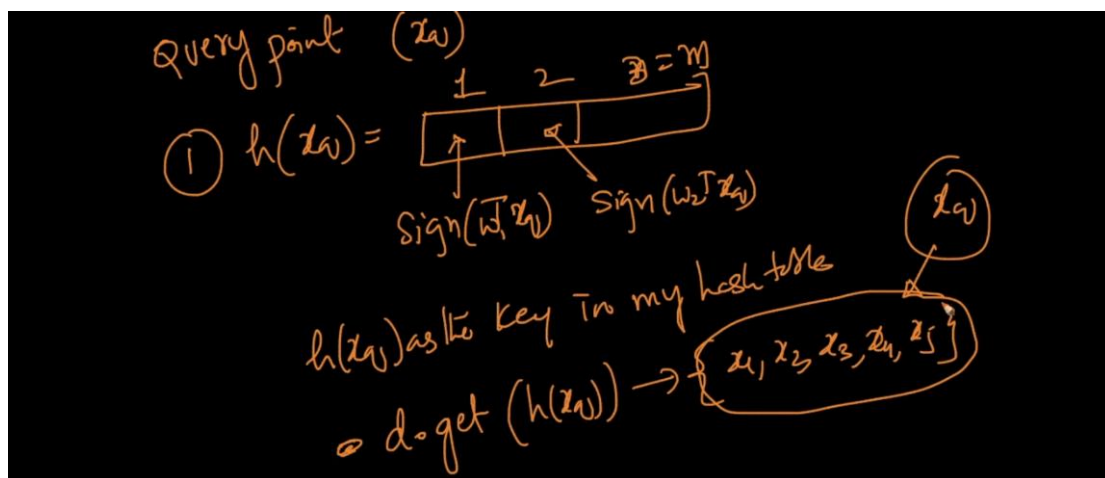 Query point (xq)
1 2 3=m
① h(xq)=
Sign(w₁ᵀxq) Sign(w₂ᵀxq)
xq
h(xq) as the key in my hash table
d.get (h(xq)) → {x1, x2, x3, x4, x5}